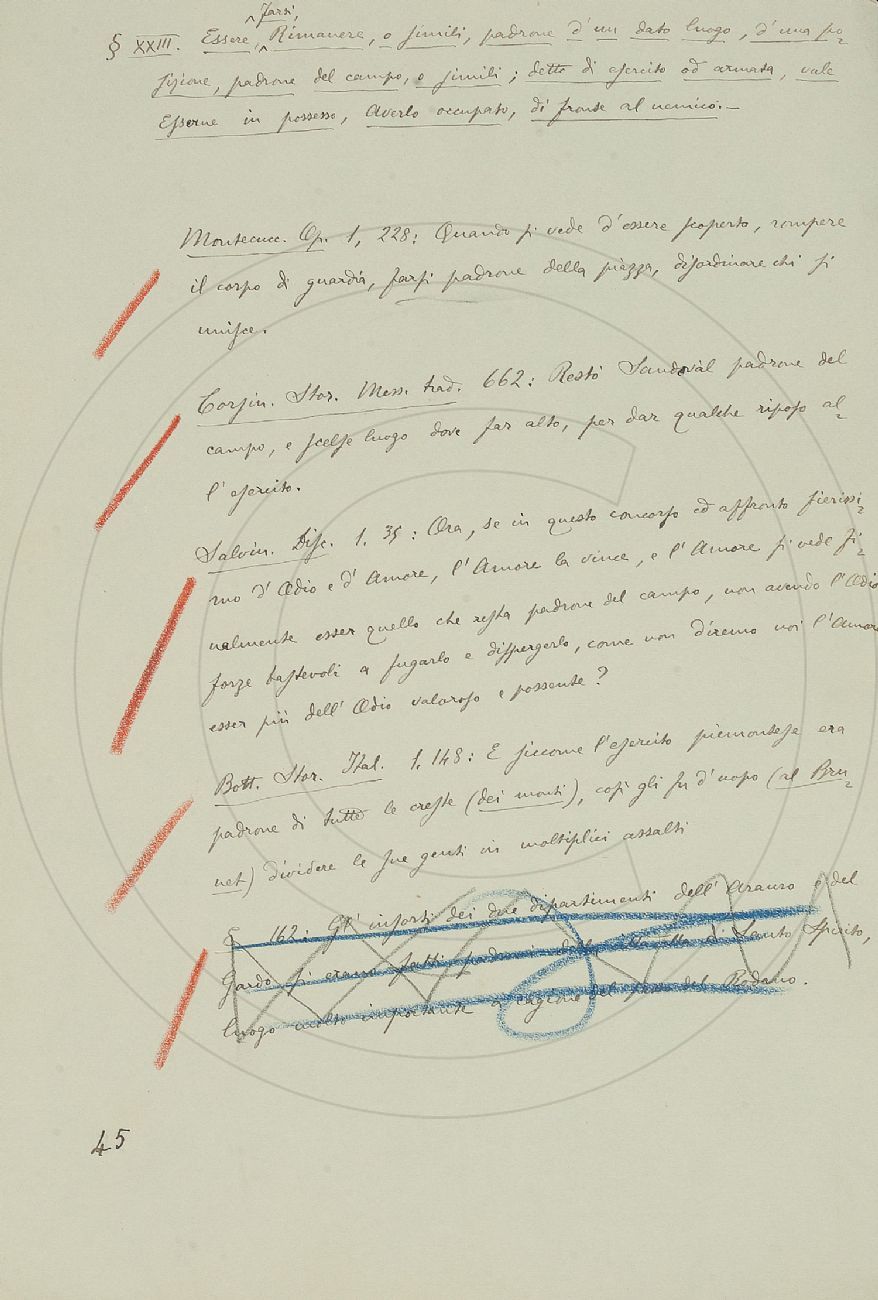 § XXIII. Essere, Farsi, Rimanere, o simili, padrone d'un dato luogo, d'una po=
sizione, padrone del campo, o simili; detto di esercito od armata, vale
Esserne in possesso, Averlo occupato, di fronte al nemico.—
Montecuc. Op. 1, 228: Quando si vede d'essere scoperto, rompere
il corpo di guardia, farsi padrone della piazza, disordinare chi si
unisce.
Corsin. Stor. Mess. trad. 662: Restò Sandoval padrone del
campo, e scelse luogo dove far alto, per dar qualche riposo al=
l'esercito.
Salvin. Disc. 1. 35: Ora, se in questo concorso ed affronto fierissi=
mo d'Odio e d'Amore, l'Amore la vince, e l'Amore si vede fi=
nalmente esser quello che resta padrone del campo, non avendo l'Odio
forze bastevoli a fugarlo e dispergerlo, come non diremo noi l'Amore
esser più dell'Odio valoroso e possente?
Bott. Stor. Ital. 1. 148: E siccome l'esercito piemontese era
padrone di tutte le creste (dei monti), così gli fu d'uopo (al Bru=
net) dividere le sue genti in moltiplici assalti
E 162: Gl'insorti dei due dipartimenti dell'Arauro e del
Gardo si erano fatti padroni della di Santo Spirito,
luogo molto importante a cagione del passo del Rodano.
45